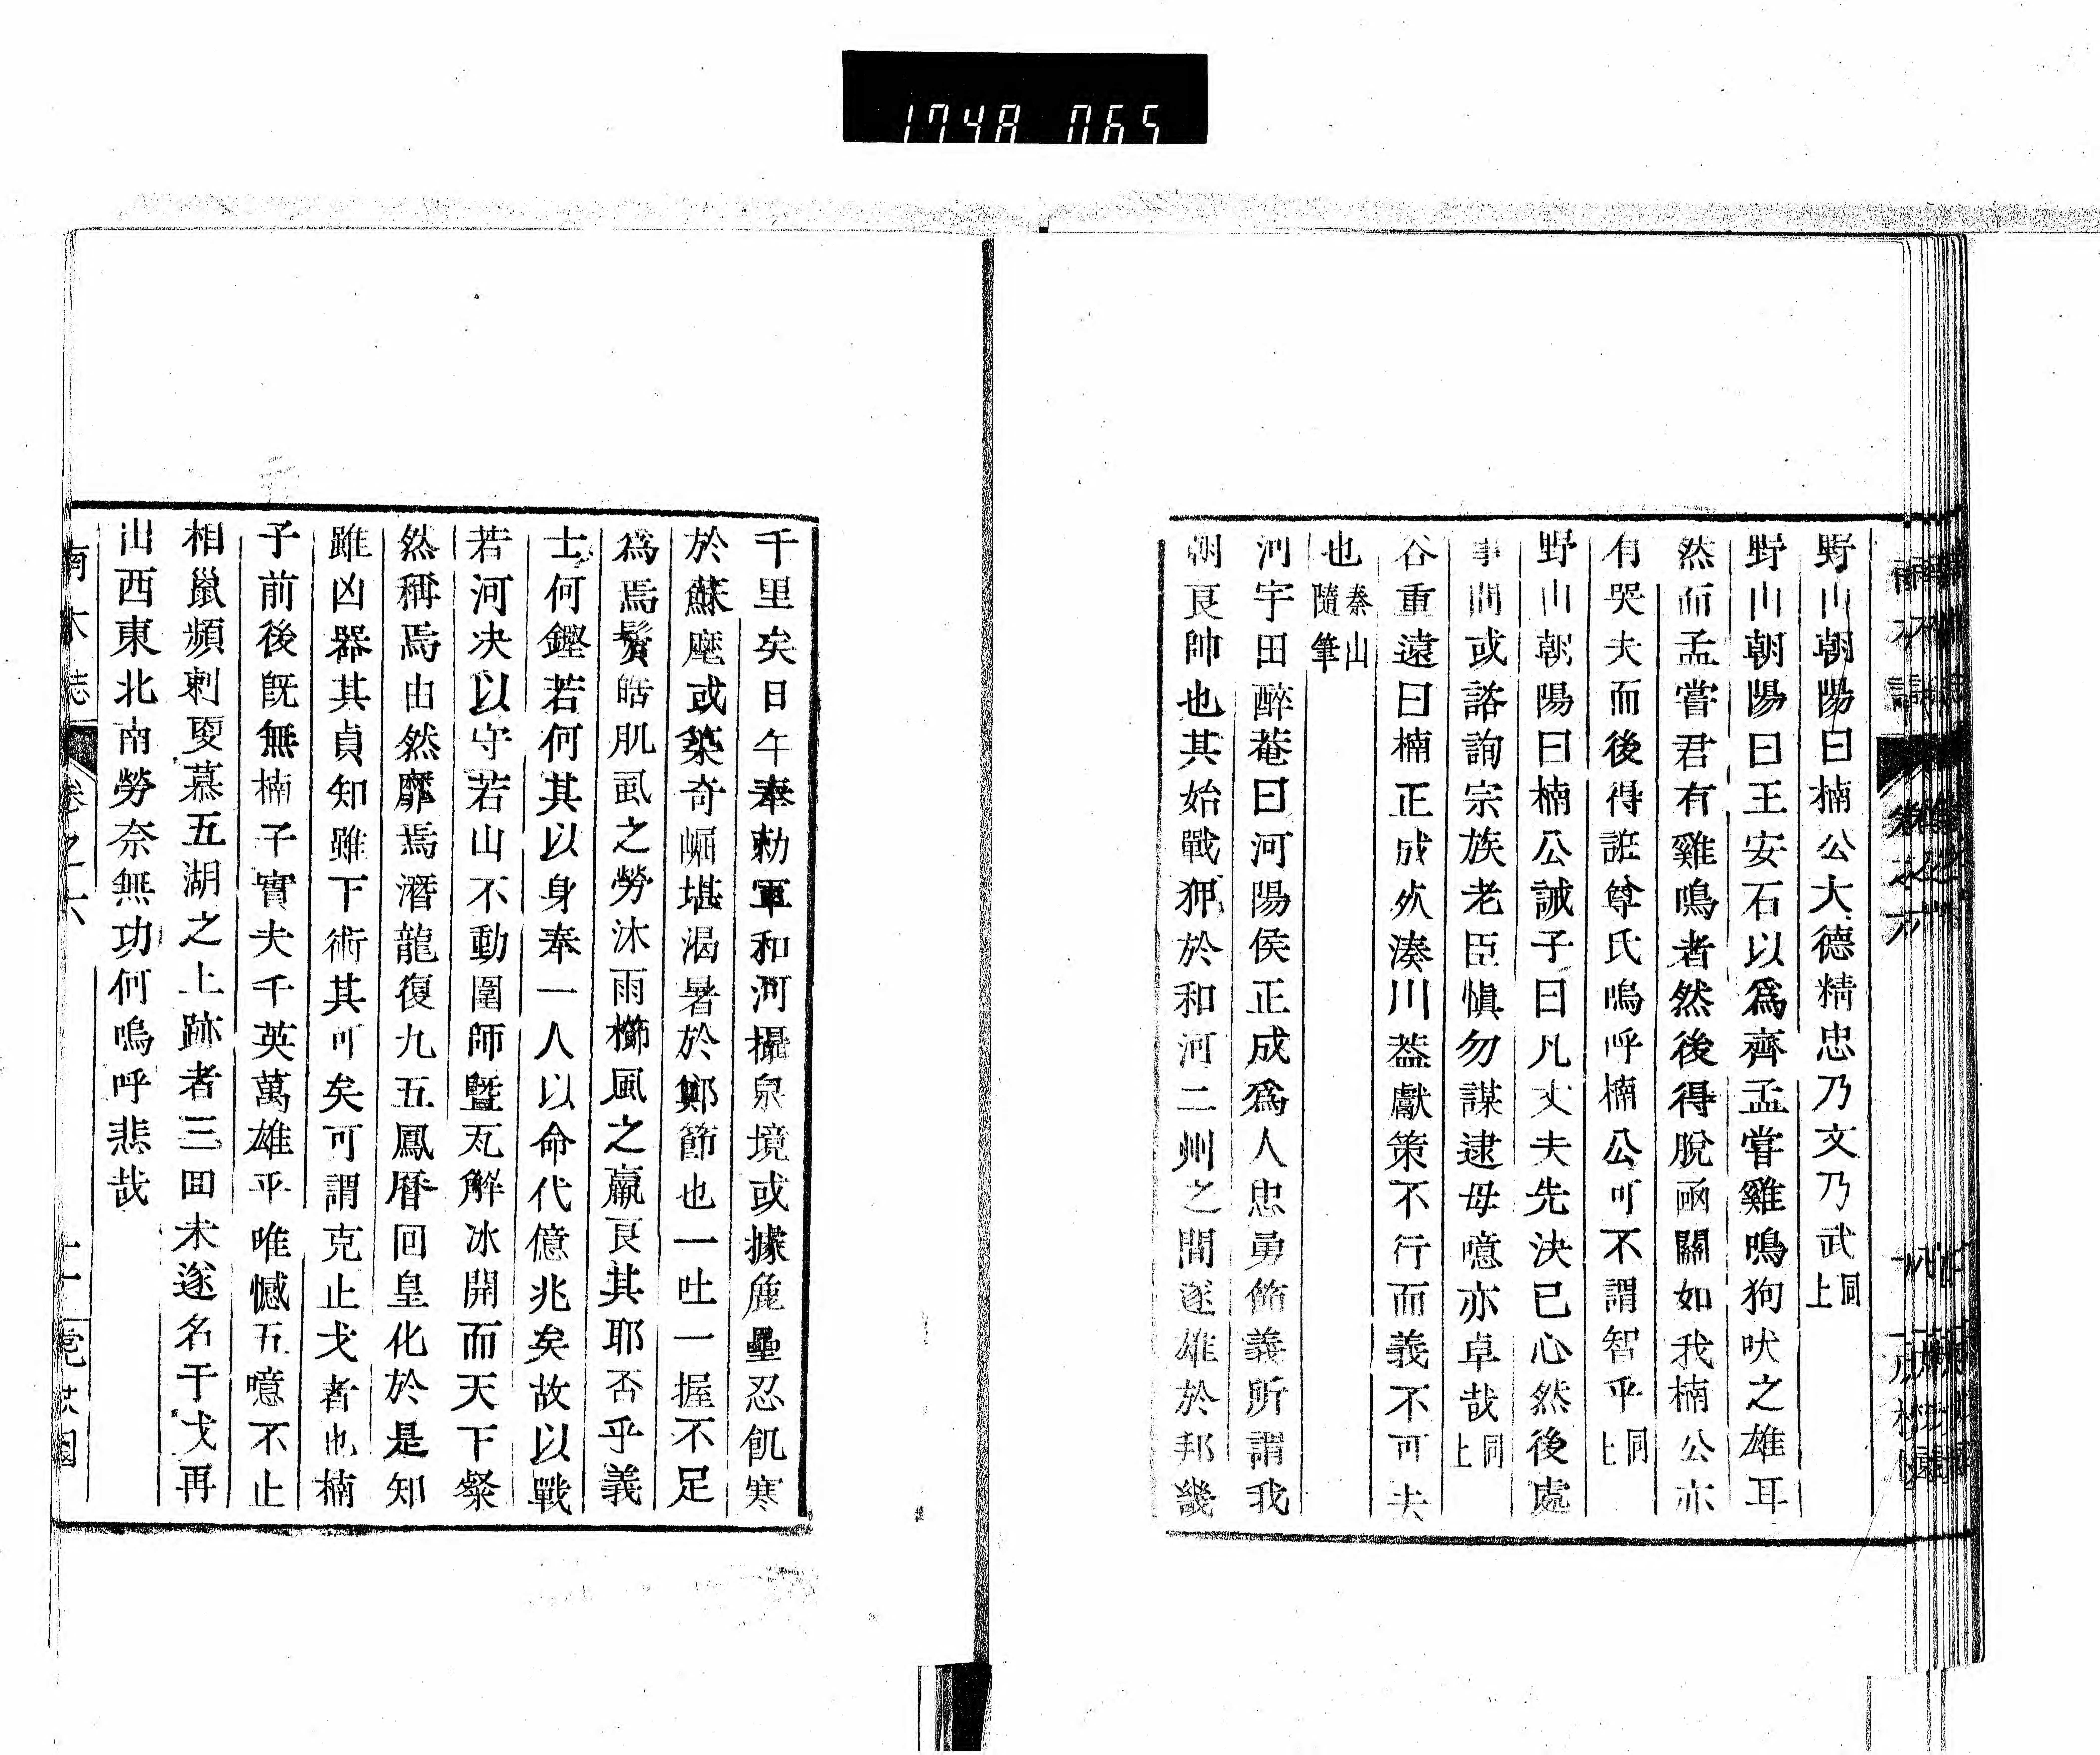 1748 065
野山朝陽曰楠公大德精忠乃文乃武同上
野山朝陽曰王安石以爲齊孟嘗雞鳴狗吠之雄耳
然而孟嘗君有雞鳴者然後得脫凾關如我楠公亦
有哭夫而後得誑尊氏嗚呼楠公可不謂智乎同上
野山朝陽曰楠公誡子曰凡丈夫先決己心然後處
事間或諮詢宗族老臣愼勿謀逮毋噫亦卓哉同上
谷重遠曰楠正成㱦湊川葢獻策不行而義不可去
也秦山隨筆
河宇田醉菴曰河陽侯正成爲人忠勇節義所謂我
朝良帥也其始戰狎於和河二州之間遂雄於邦畿
千里矣日午奉勅軍和河攝泉境或據麁壘忍飢寒
於蘇麾或築奇崛堪渴暑於鄭節也一吐一握不足
爲焉鬢皓肌虱之勞沐雨櫛風之羸良其耶否乎義
士何鏗若何其以身奉一人以命代億兆矣故以戰
若河决以守若山不動圍師曁瓦解冰開而天下粲
然稱焉由然靡焉潛龍復九五鳳曆回皇化於是知
雖凶器其貞知雖下術其可矣可謂克止戈者也楠
子前後旣無楠子實夫千英萬雄乎唯憾五噫不止
相鼠頻刺更慕五湖之上跡者三回未遂名干戈再
山西東北南勞奈無功何嗚呼悲哉
南木誌
卷之六